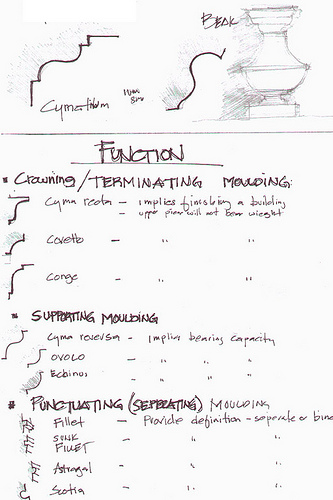 BEAK
Cymatium
FUNCTION
Crowning/TERMINATING MOULDING:
Cyma recta - implies finishing a building
- upper piece will not bear weight
Cavetto - " "
Conge - " "
SUPPORTING MOULDING
Cyma reversa - implies bearing capacity
OVOLO - " "
Echinus - " "
PUNCTUATING (SEPERATING) MOULDING
Fillet - Provide definition - seperate or bind
SUNK - " "
FILLET
Astragal - " "
Scotia - " "